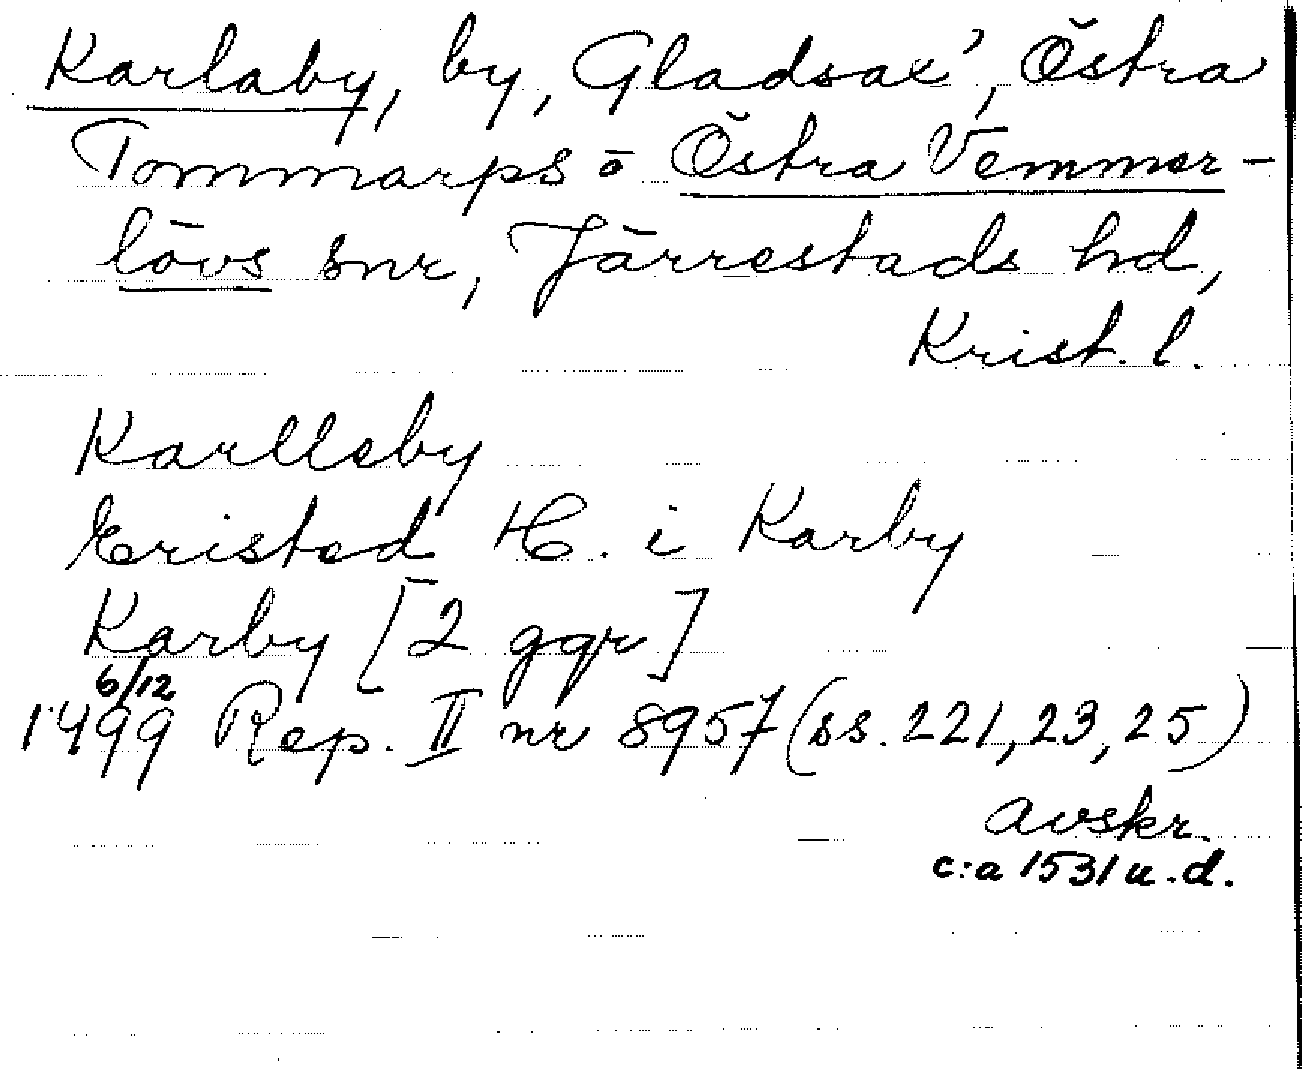 Karlaby, by, Gladsax', Östra
Tommarps o Östra Vemmer-
lövs snr, Järrestads hd,
Krist. l.
Karlleby
Cristed H. i Karby
Karby [2 ggr]
6/12
1499 Rep. II nr 8957 (ss. 221, 23, 25)
avskr.
c:a 1531 u.d.